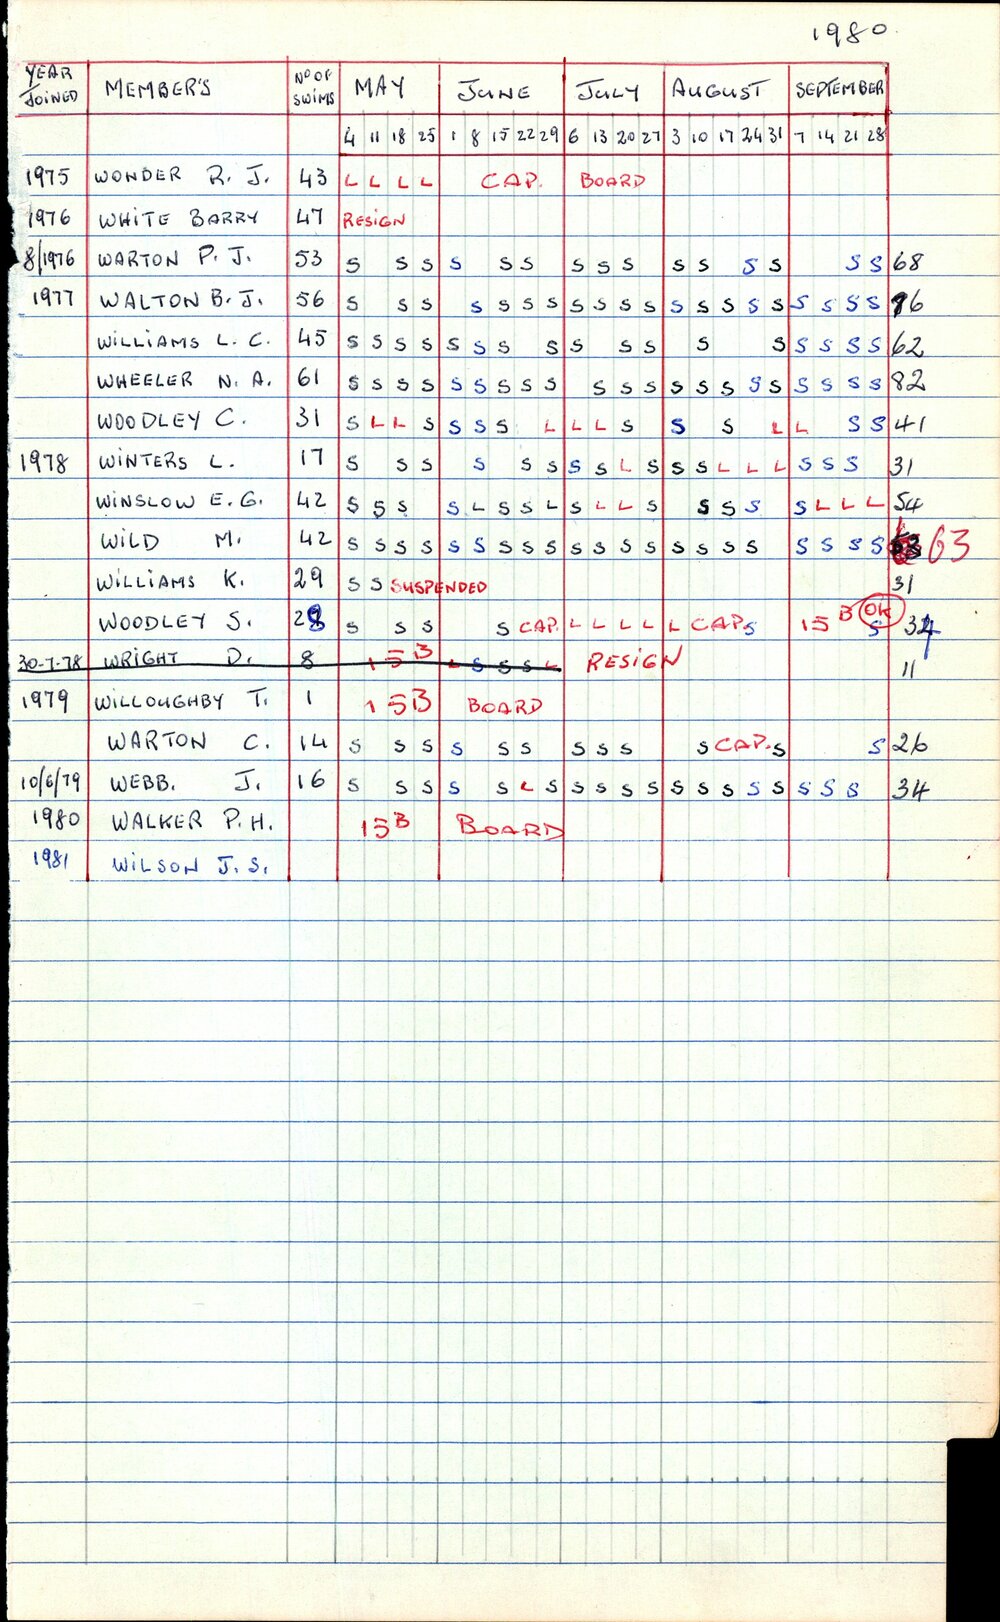 1980
YEAR JOINED MEMBER'S Nº OF SWIMS MAY JUNE JULY AUGUST SEPTEMBER
4 11 18 25 1 8 15 22 29 6 13 20 27 3 10 17 24 31 7 14 21 28
1975 WONDER R. J. 43 L L L L CAP. BOARD
1976 WHITE BARRY 47 RESIGN
8/1976 WARTON P. J. 53 S S S S S S S S S S S S S S S 68
1977 WALTON B. J. 56 S S S S S S S S S S S S S S S S S S S S 76
WILLIAMS L. C. 45 S S S S S S S S S S S S S S S S S 62
WHEELER N. A. 61 S S S S S S S S S S S S S S S S S S S S S 82
WOODLEY C. 31 S L L S S S S L L L S S S L L S S 41
1978 WINTERS L. 17 S S S S S S S S L S S S L L L S S S 31
WINSLOW E. G. 42 S S S S L S S L S L L S S S S S L L L 54
WILD M. 42 S S S S S S S S S S S S S S S S S S S S S 63
WILLIAMS K. 29 S S SUSPENDED 31
WOODLEY S. 28 S S S S CAP. L L L L L CAP. S 15 B OK S 34
30-7-78 WRIGHT D. 8 15B L S S S L RESIGN 11
1979 WILLOUGHBY T. 1 15B BOARD
WARTON C. 14 S S S S S S S S S S CAP. S S 26
10/6/79 WEBB. J. 16 S S S S S L S S S S S S S S S S S S S 34
1980 WALKER P. H. 15B BOARD
1981 WILSON J. S.